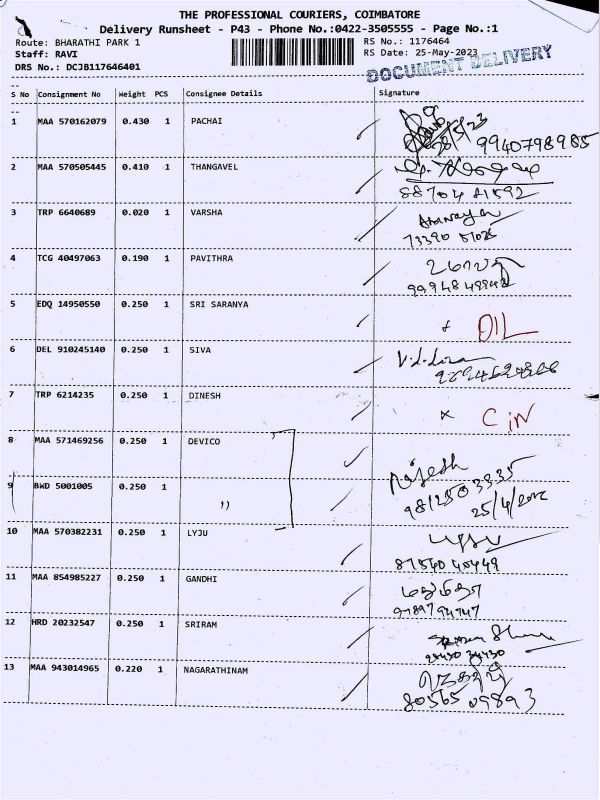 THE PROFESSIONAL COURIERS, COIMBATORE
Delivery Runsheet - P43 - Phone No.:0422-3505555 - Page No.:1
Route: BHARATHI PARK 1 RS No.: 1176464
Staff: RAVI RS Date: 25-May-2023
DRS No.: DCJB117646401 DOCUMENT DELIVERY
S No Consignment No Weight PCS Consignee Details Signature
1 MAA 570162079 0.430 1 PACHAI 9940798985
2 MAA 570505445 0.410 1 THANGAVEL
88704 81592
3 TRP 6640689 0.020 1 VARSHA
73390 51025
4 TCG 40497063 0.190 1 PAVITHRA
5 EDQ 14950550 0.250 1 SRI SARANYA DIL
6 DEL 910245140 0.250 1 SIVA
7 TRP 6214235 0.250 1 DINESH x CIN
8 MAA 571469256 0.250 1 DEVICO Rajesh
9 BWD 5001005 0.250 1 " 9812503335
10 MAA 570382231 0.250 1 LYJU Lyju
87540 40449
11 MAA 854985227 0.250 1 GANDHI
9789794747
12 HRD 20232547 0.250 1 SRIRAM
13 MAA 943014965 0.220 1 NAGARATHINAM
80565 09893